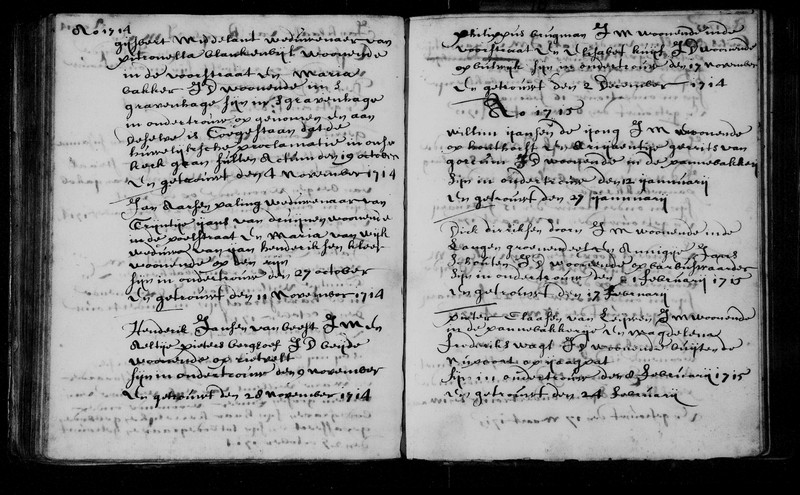 Ao 1714
gijsbert Middelant weduwenaer van
pitronella blanckenbijl woonende
in de voorstraat En Maria
bakker J D woonende in S
gravenhage sijn in S gravenhage
in ondertrouw op genomen en aan
deselve is toegestaan dat de
huwelijksche proclamatie in onse
kerk gaan sullen Actum den 19 october
En getrouwt den 4 November 1714
Jan Aarsen paling weduwenaar van
Trijntje Jans van woonende
in de poelstraat En Maria van wijk
weduwe van Jan henderiksen
woonende op den rijn
sijn in ondertrouw den 27 october
En getrouwt den 11 November 1714
Henderik Jansen van beest J M en
Aeltje pieters bergloef J D beijde
woonende op rietvelt
sijn in ondertrouw den 9 November
En getrouwt den 28 November 1714
Philippus brugman J M woonende inde
voorstraat En Elisabet kuijf J D woonende
op sijn in ondertrouw den 17 November
En getrouwt den 2 December 1714
Ao 1715
Willem Jansen de Jong J M woonende
op houtdijck En gerrits van
gorcum J D woonende in de pannebakkerij
sijn in ondertrouw den 12 Januarij
En getrouwt den 27 Januarij
Dirk dirksen doorn J M woonende inde
Langen groenendael En Annigje Jans
Schouten J D woonende op barwoutswaarder
sijn in ondertrouw den 1 februarij 1715
En getrouwt den 17 februarij
pieter Claasen van J M woonende
in de pannebakkerije En Magdalena
frederiks wagt J D woonende buijten de
op
sijn in ondertrouw den 8 februarij 1715
En getrouwt den 24 februarij